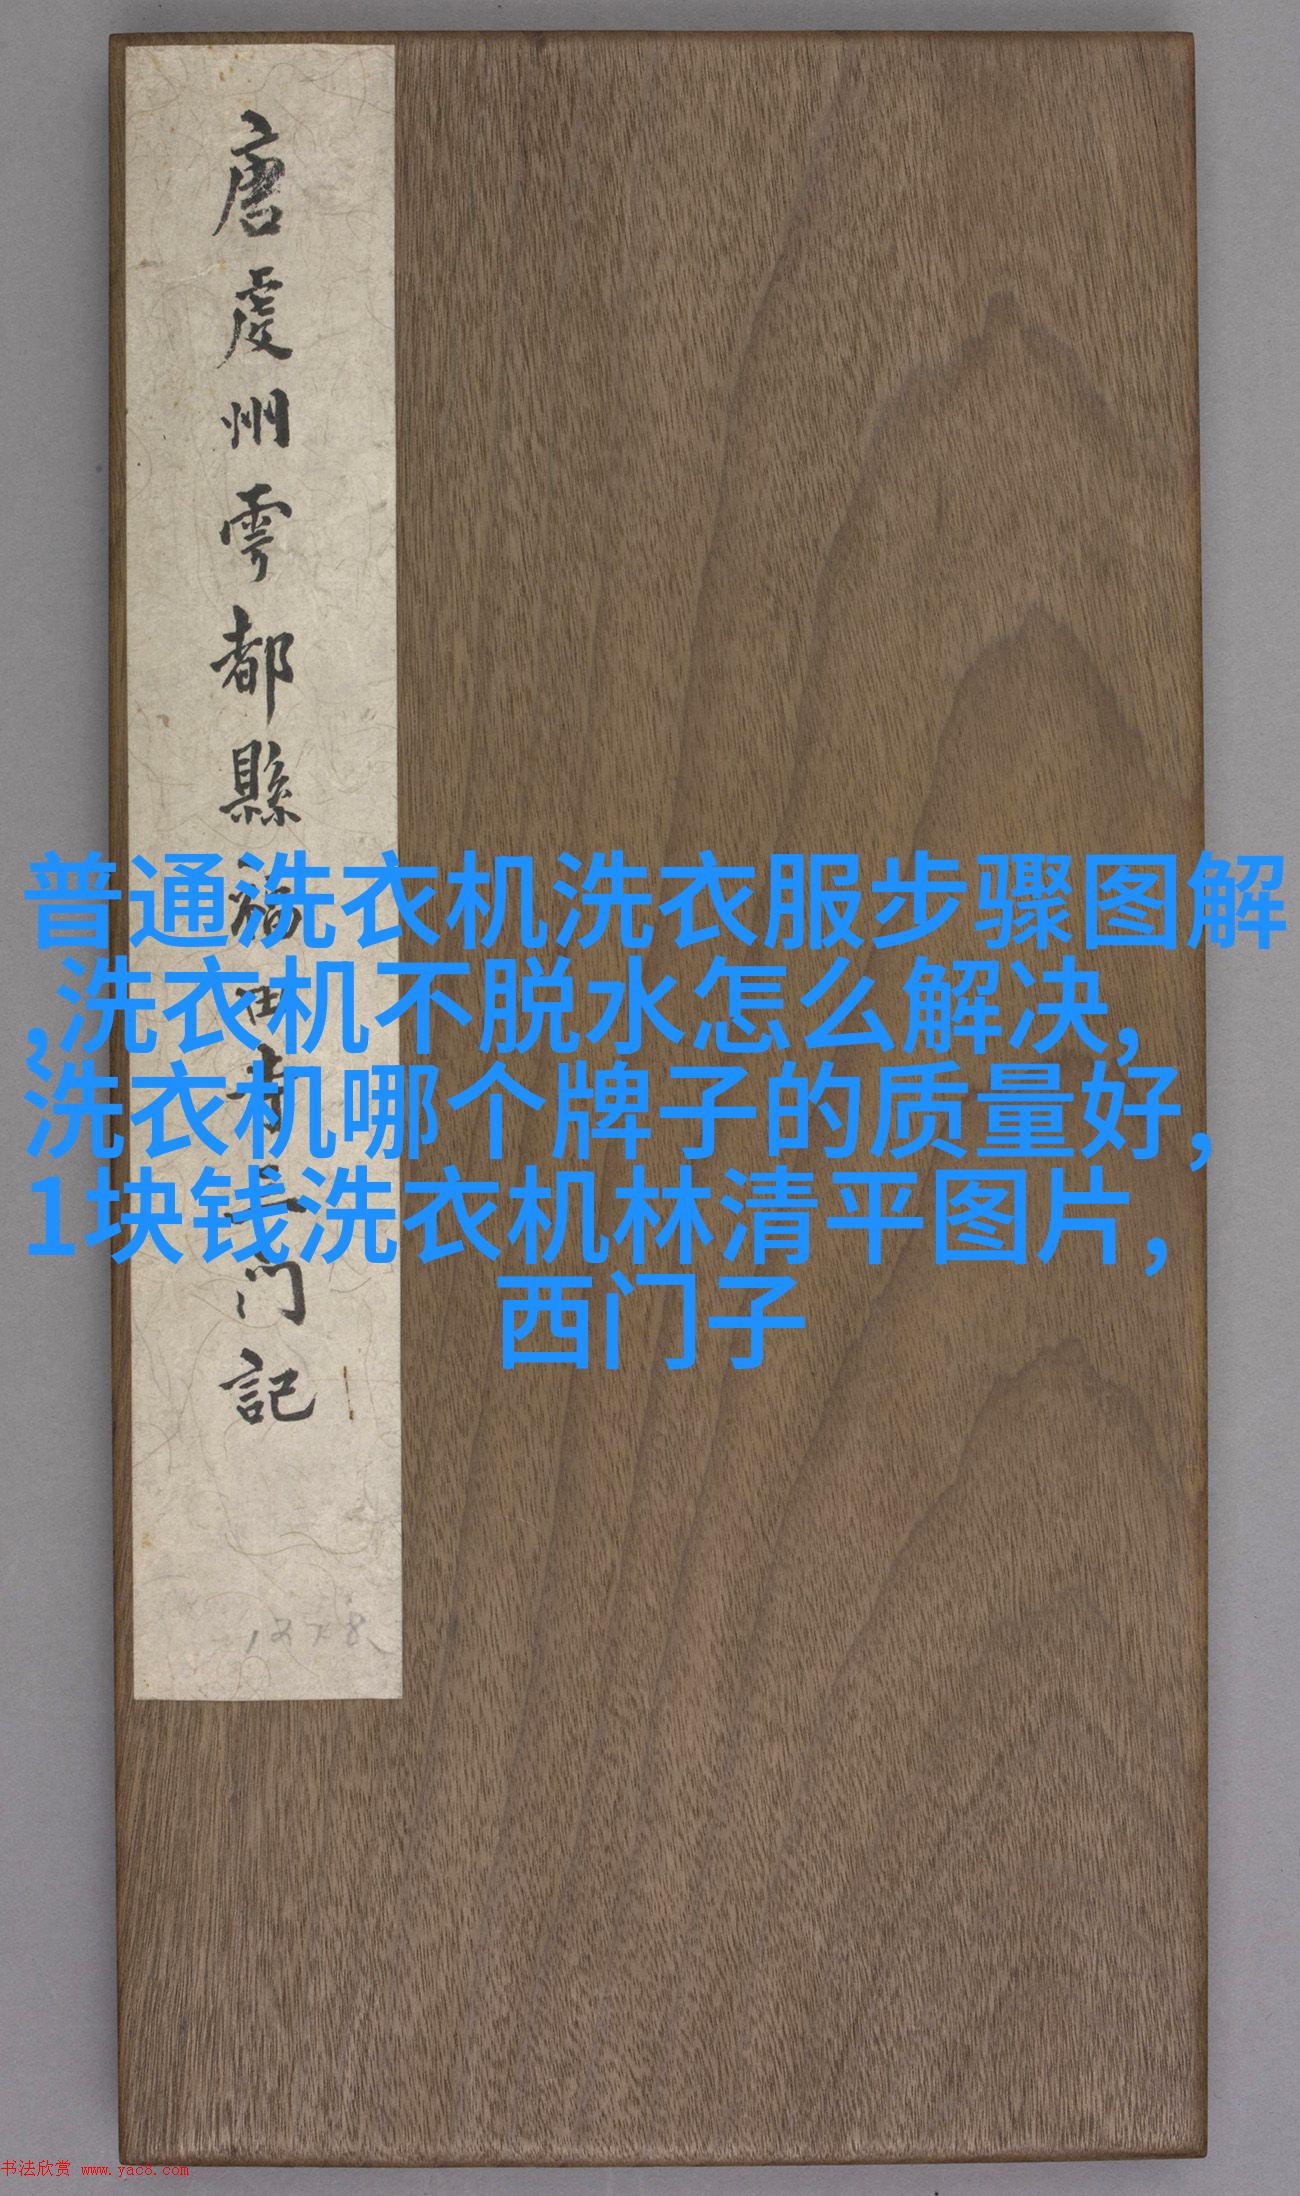 唐虔州雩都縣福田寺三門記
普通洗衣机洗衣服步骤图解
,洗衣机不脱水怎么解决,
洗衣机哪个牌子的质量好,
1块钱洗衣机林清平图片,
西门子
书法欣赏 www.yac8.com